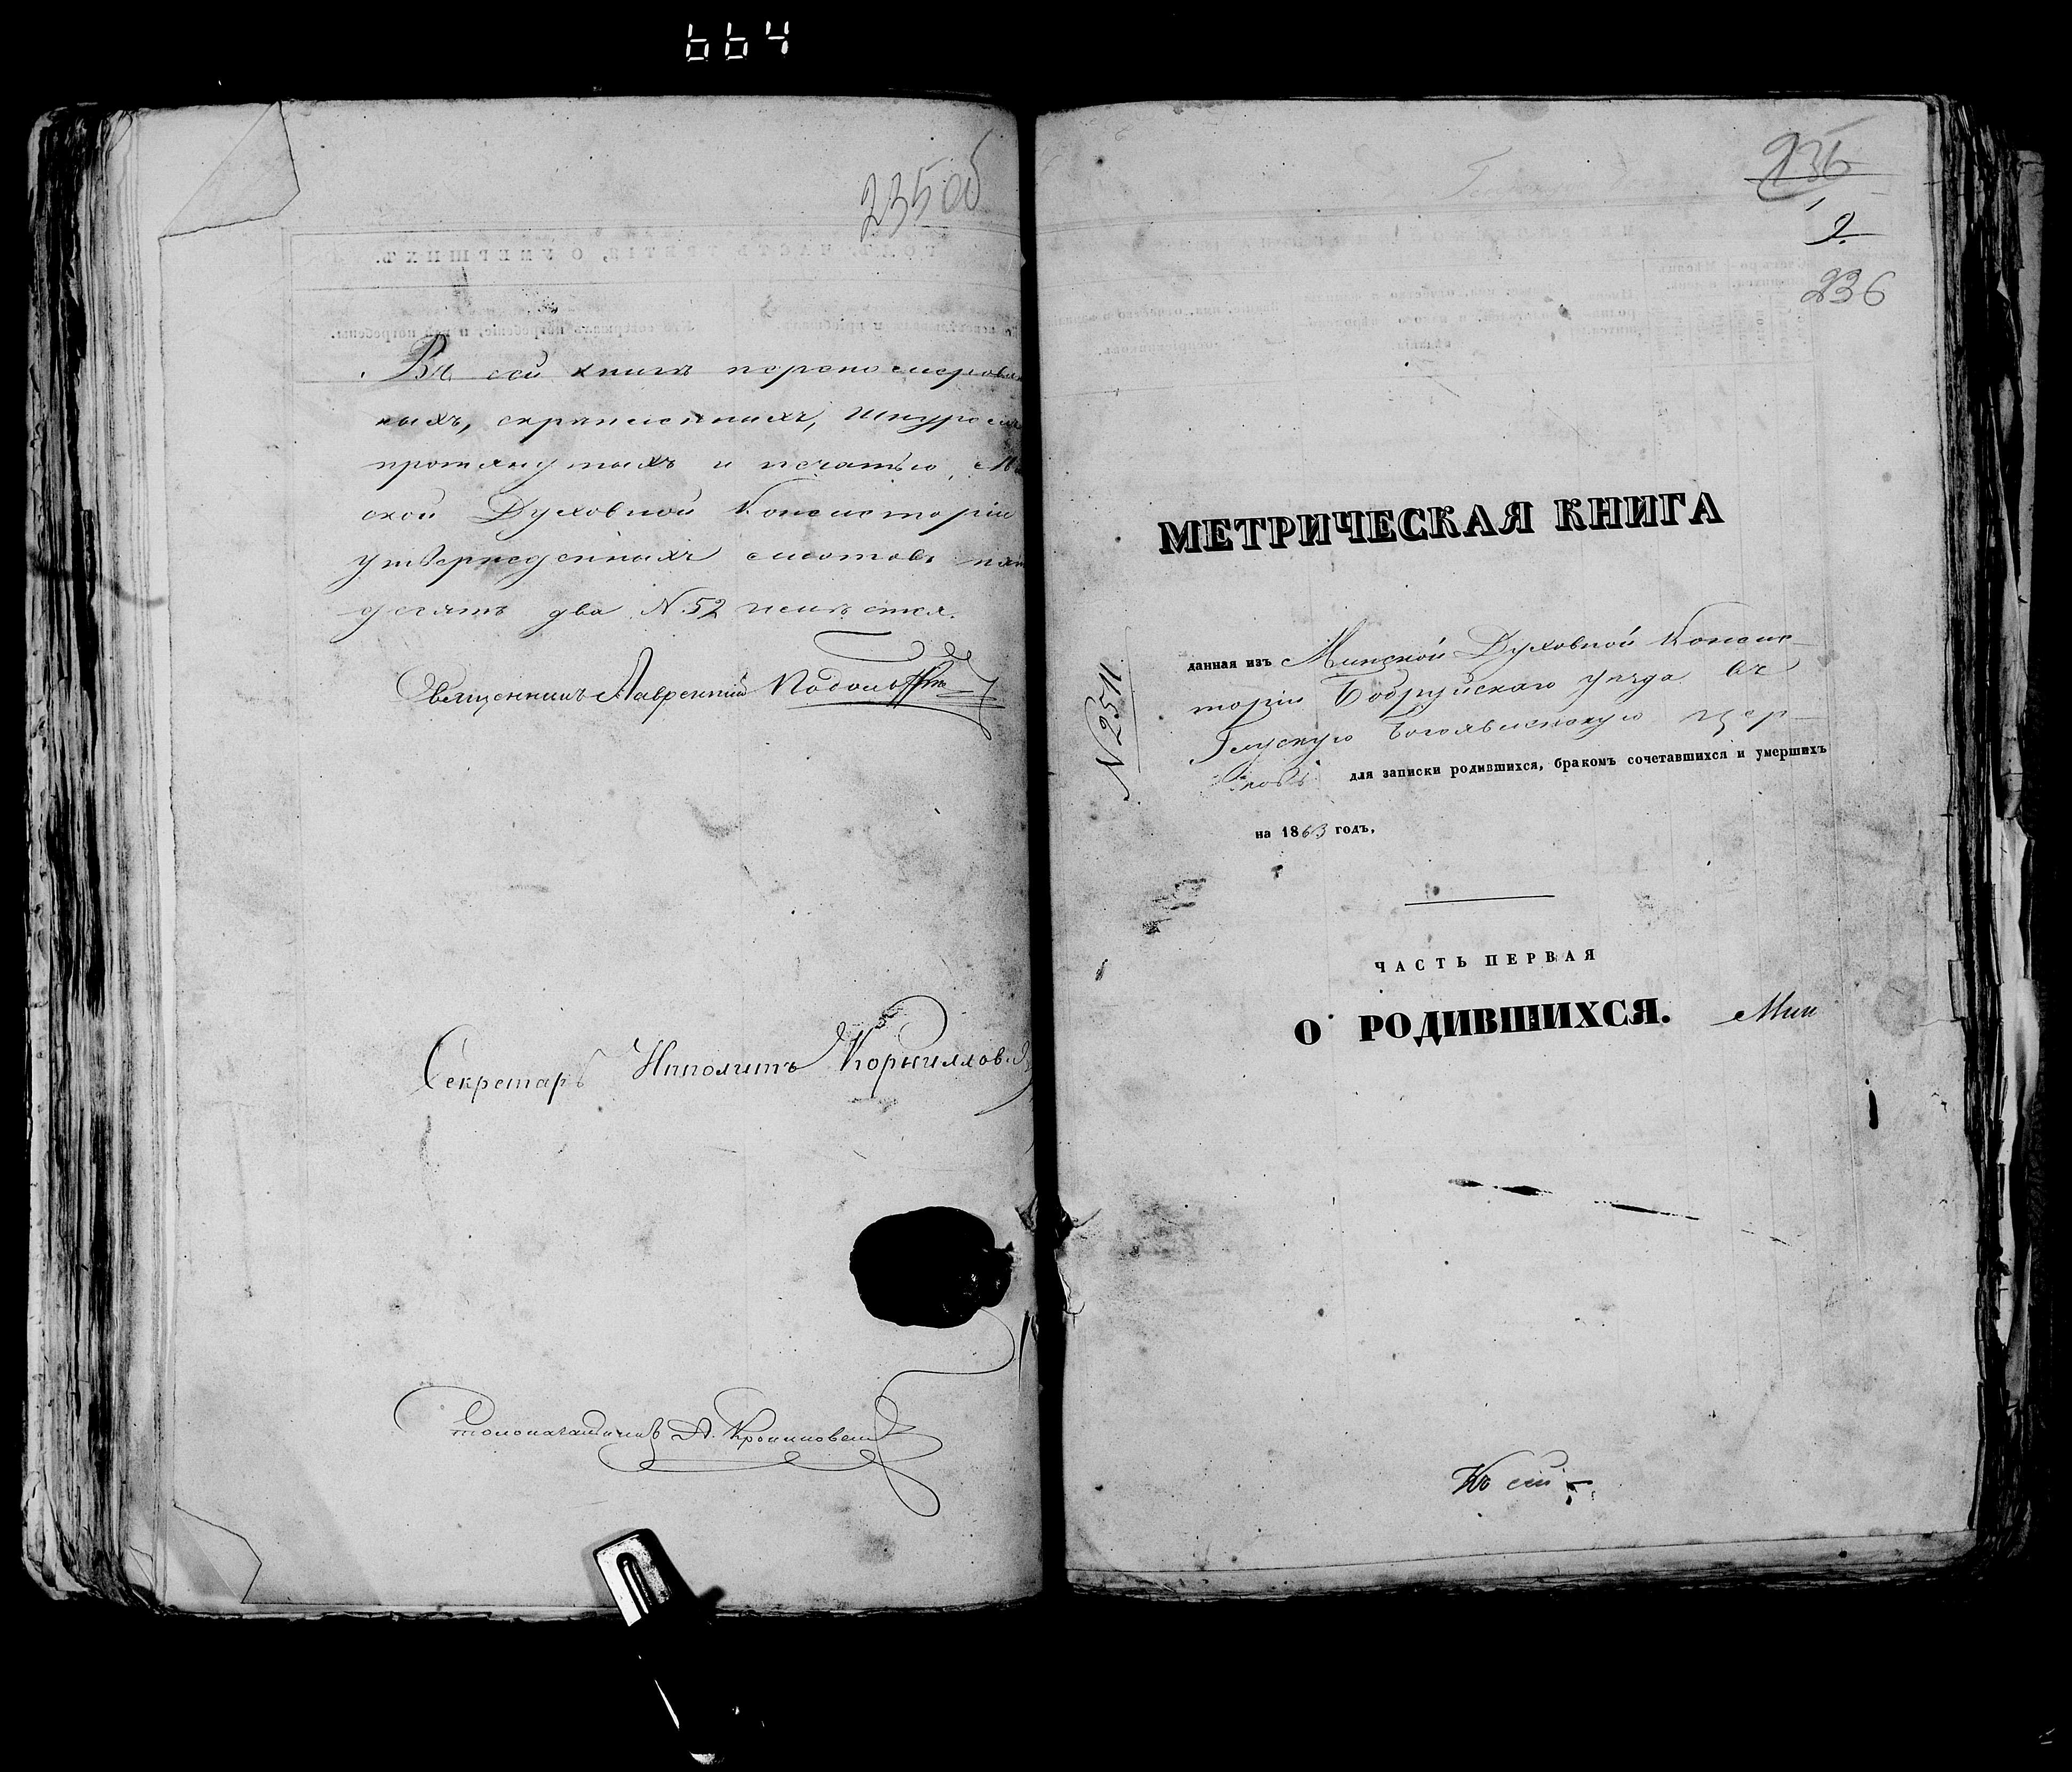 664
235 об
Въ сей книгѣ перенумерован
ныхъ, скрѣпленныхъ, шнуромъ
протянутыхъ и печатью Мин
ской Духовной Консисторіи
утвержденныхъ листовъ пять
десятъ два №52 имѣется.
Священникъ Лаврентій
Секретарь Ипполитъ Корниллов
Столоначальникъ А.
236
2.
236
МЕТРИЧЕСКАЯ КНИГА
№2511
данная изъ Минской Духовной Консис-
торіи Бобруйскаго уѣзда въ
Глускую Богоявленскую цер-
ковь для записки родившихся, бракомъ сочетавшихся и умершихъ
на 1863 годъ,
ЧАСТЬ ПЕРВАЯ
О РОДИВШИХСЯ. Мин
Къ сей